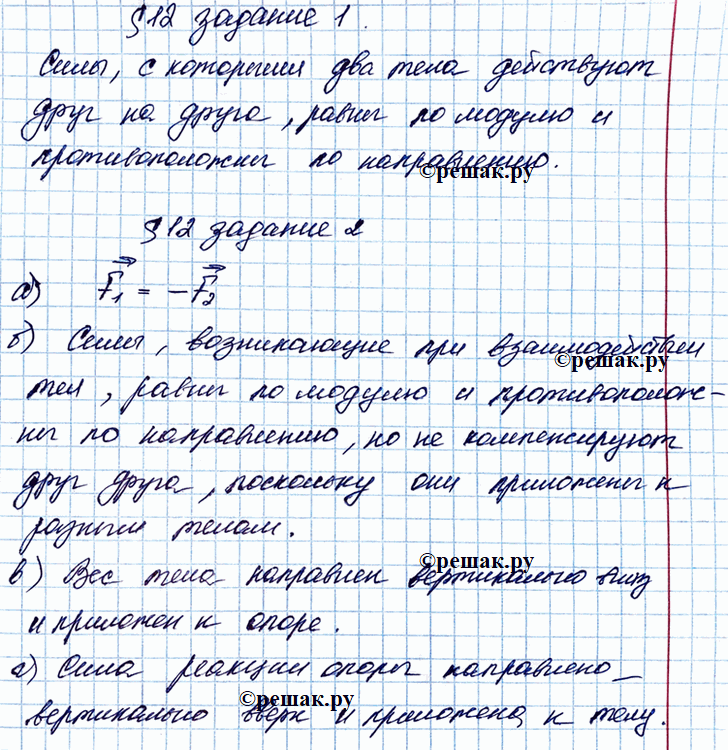 §12 задание 1.
Силы, с которыми два тела действуют
друг на друга, равны по модулю и
противоположны по направлению.
©решак.ру
§12 задание 2
а) F₁ = -F₂
б) Силы, возникающие при взаимодействии
©решак.ру
тел, равны по модулю и противополож-
ны по направлению, но не компенсируют
друг друга, поскольку они приложены к
разным телам.
©решак.ру
в) Вес тела направлен вертикально вниз
и приложен к опоре.
г) Сила реакции опоры направлено
©решак.ру
вертикально вверх и приложена к телу.